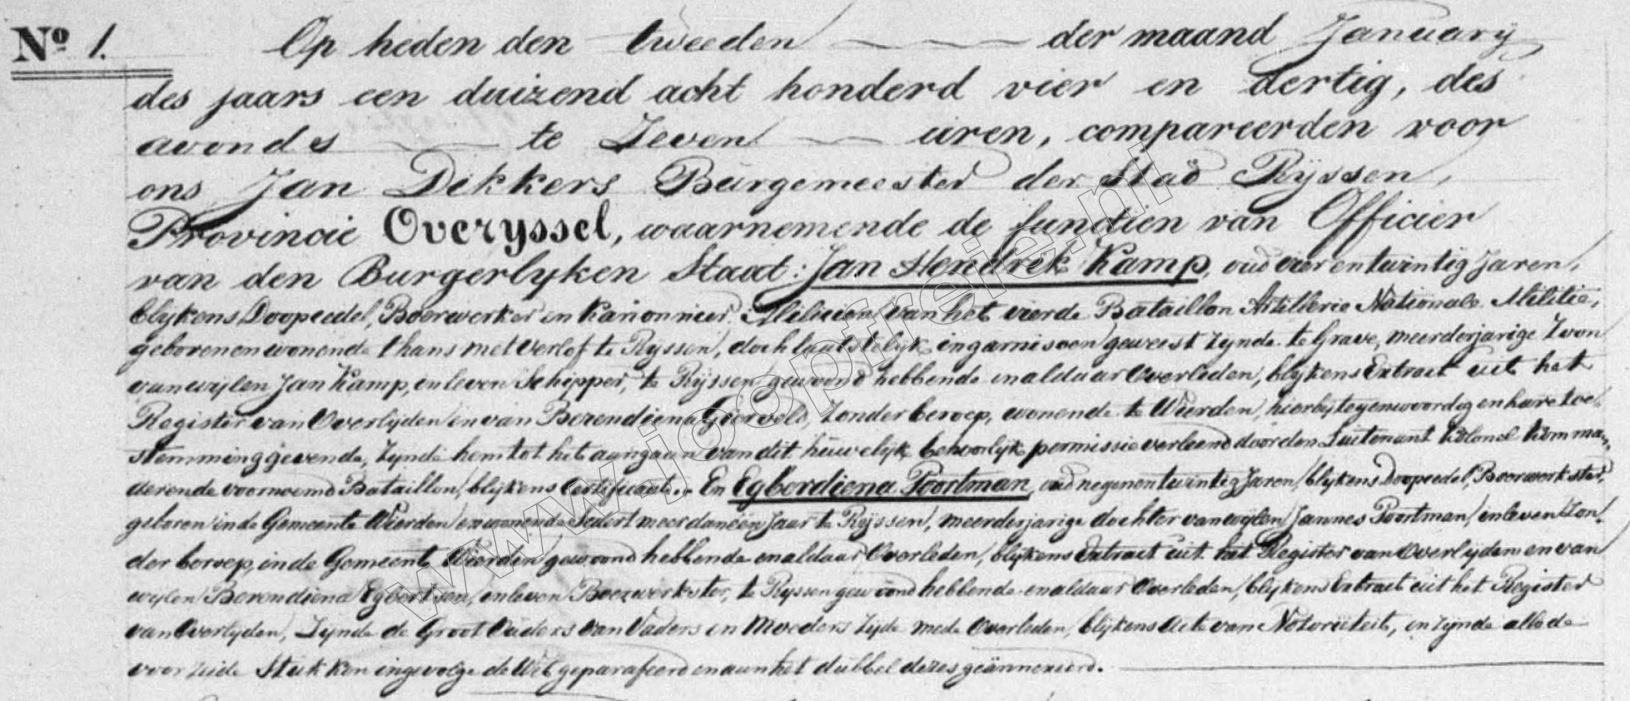 No 1. Op heden den tweeden der maand January
des jaars een duizend acht honderd vier en dertig, des
avonds te Zeven uren, compareerden voor
ons Jan Dekkers Burgemeester der Stad Ryssen,
Provincie Overyssel, waarnemende de functien van Officier
van den Burgerlyken Staat: Jan Hendrik Kamp, oud vier en twintig Jaren,
blykens Doopcedel, Boerwerker en Kanonnier, Milicien van het vierde Bataillon Artillerie Nationale Militie,
geboren en wonende thans met verlof te Ryssen, doch laatstelyk in garnisoen geweest Zynde te Grave, meerderjarige Zoon
van wylen Jan Kamp, in leven Schipper, te Ryssen gewoond hebbende en aldaar Overleden, blykens Extract uit het
Register van Overlyden en van Berendiena Zonder beroep, wonende te Wierden, hierby tegenwoordig en hare toe-
stemming gevende, Zynde hem tot het aangaan van dit huwelyk behoorlyk permissie verleend door den Luitenant Kolonel Komman-
derende voornoemd Bataillon, blykens Certificaat. En Egberdiena Poortman, oud negen en twintig Jaren, blykens Doopcedel, Boerwerkster,
geboren in de Gemeente Wierden en wonende Sedert meer dan een Jaar te Ryssen, meerderjarige dochter van wylen Jannes Poortman, in leven Zon-
der beroep, in de Gemeente Wierden gewoond hebbende en aldaar Overleden, blykens Extract uit het Register van Overlyden en van
wylen Berendiena Egbertsen, in leven Boerwerkster, te Ryssen gewoond hebbende en aldaar Overleden, blykens Extract uit het Register
van Overlyden, Zynde de Groot Ouders van Vaders en Moeders Zyde mede Overleden, blykens Acte van Notoriëteit, en Zynde alle de
voorzeide Stukken ingevolge de Wet geparafeerd en aan het dubbel dezes geännexeerd.
www.joopfrei.nl